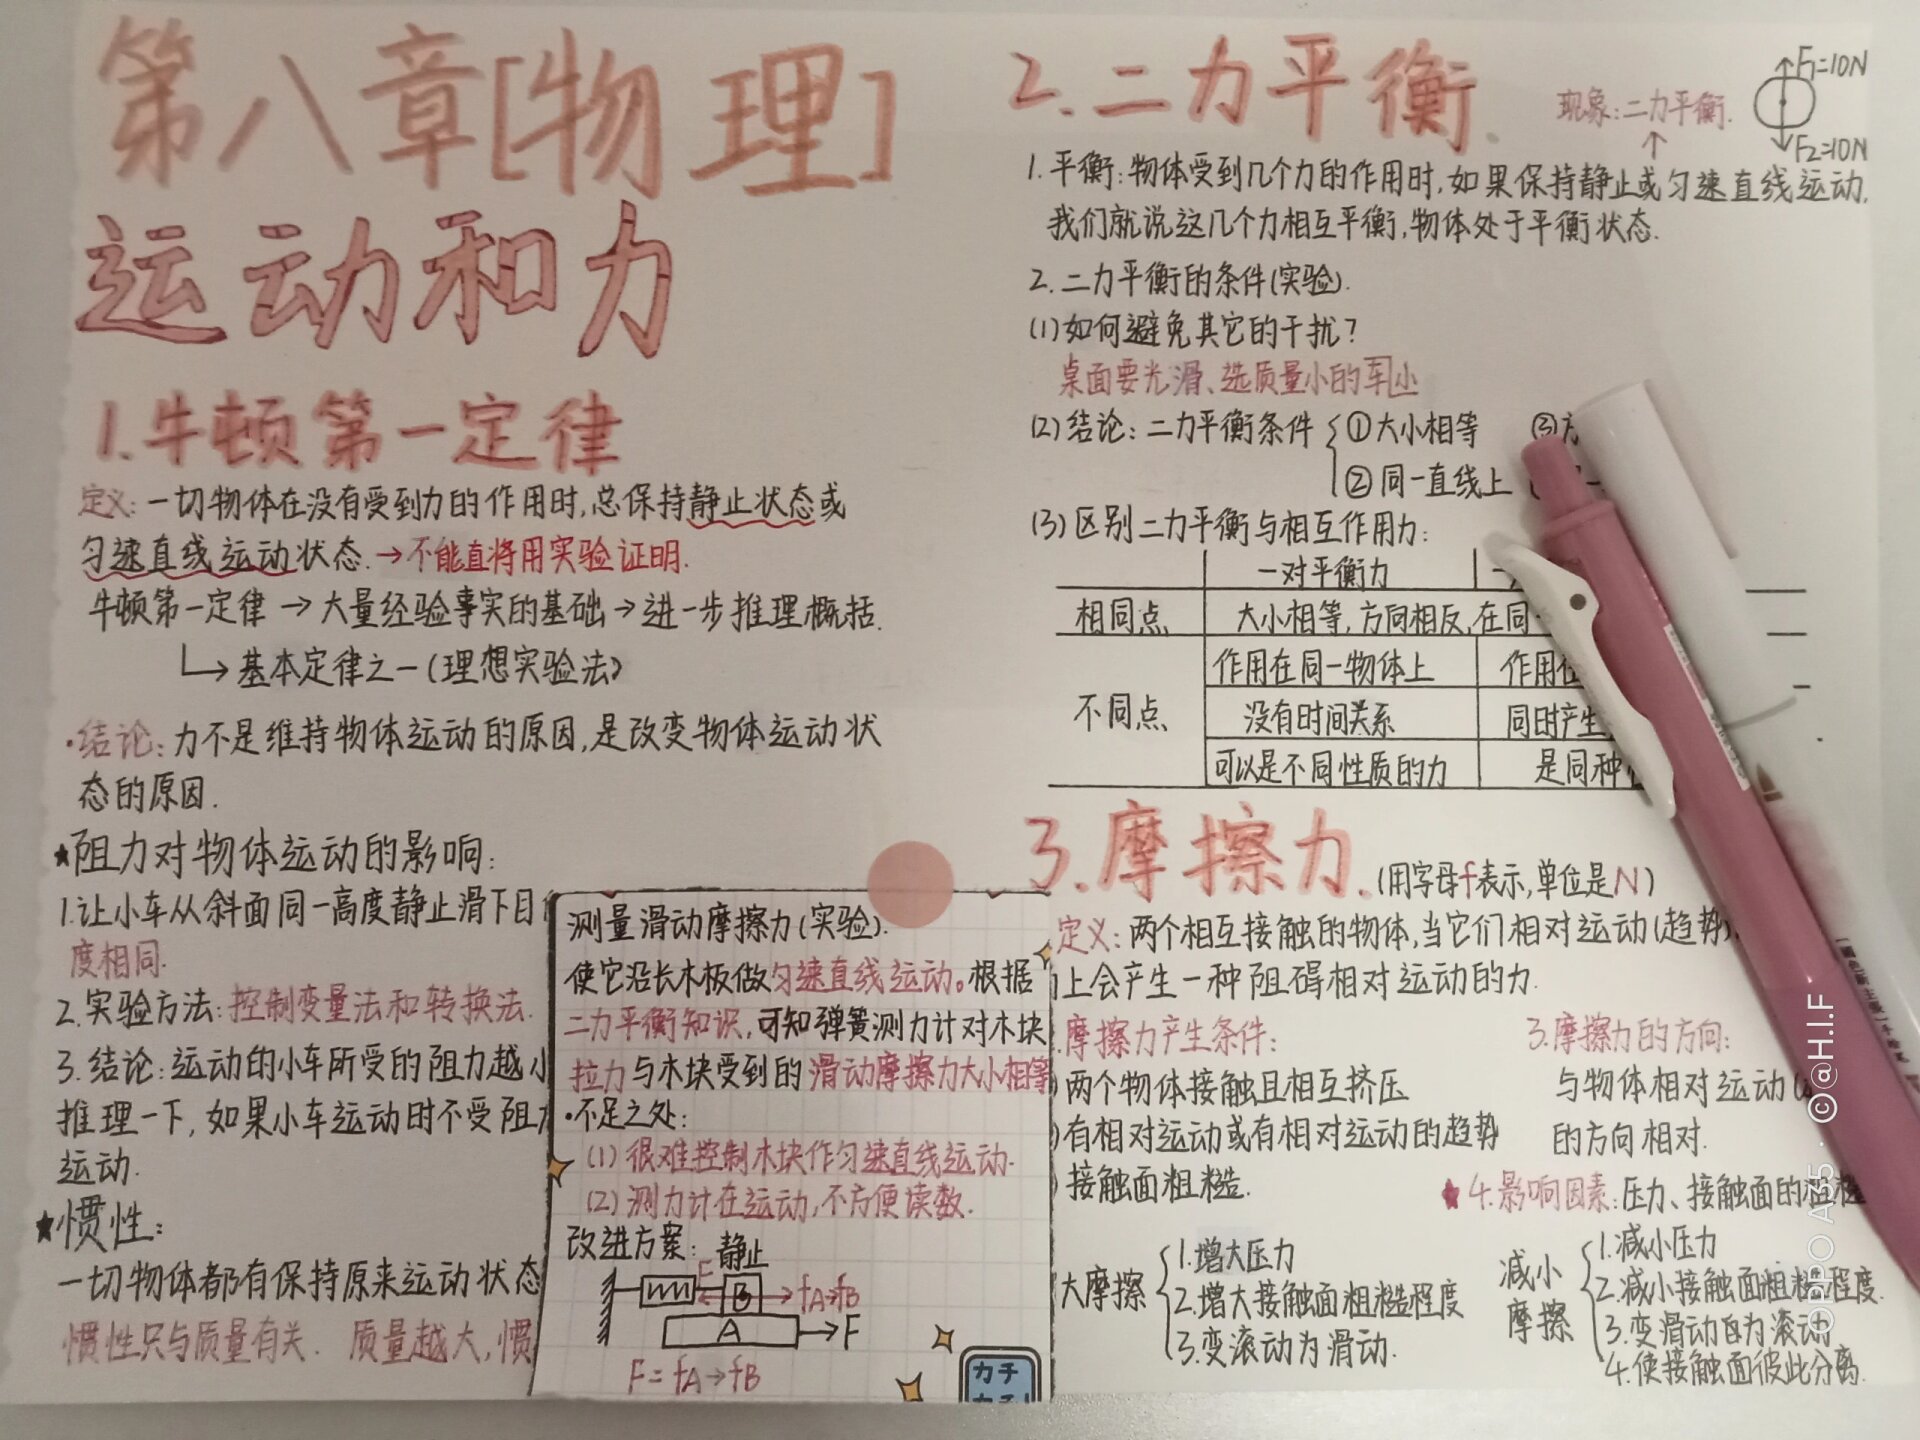 第八章[物理]
运动和力
1.牛顿第一定律
定义:一切物体在没有受到力的作用时,总保持静止状态或
匀速直线运动状态.→不能直将用实验证明.
牛顿第一定律→大量经验事实的基础→进一步推理概括.
基本定律之一(理想实验法)
·结论:力不是维持物体运动的原因,是改变物体运动状
态的原因.
★阻力对物体运动的影响:
1.让小车从斜面同一高度静止滑下目
度相同.
2.实验方法:控制变量法和转换法.
3.结论:运动的小车所受的阻力越小
推理一下,如果小车运动时不受阻力
运动.
★惯性:
一切物体都有保持原来运动状态
惯性只与质量有关. 质量越大,惯
测量滑动摩擦力(实验).
使它沿长木板做匀速直线运动。根据
二力平衡知识,可知弹簧测力计对木块
拉力与木块受到的滑动摩擦力大小相等
·不足之处:
(1)很难控制木块作匀速直线运动.
(2)测力计在运动,不方便读数.
改进方案:静止
F
B fA→fB
A →F
F=fA→fB
カチ
2.二力平衡.
现象:二力平衡.
↑
F1=10N
F2=10N
1.平衡:物体受到几个力的作用时,如果保持静止或匀速直线运动,
我们就说这几个力相互平衡,物体处于平衡状态.
2.二力平衡的条件(实验).
(1)如何避免其它的干扰?
桌面要光滑、选质量小的车小
(2)结论:二力平衡条件 ①大小相等 ③方
②同一直线上
(3)区别二力平衡与相互作用力:
一对平衡力 一
相同点 大小相等,方向相反,在同一
不同点 作用在同一物体上 作用在
没有时间关系 同时产生
可以是不同性质的力 是同种
3.摩擦力.(用字母f表示,单位是N)
定义:两个相互接触的物体,当它们相对运动(趋势)
上会产生一种阻碍相对运动的力.
摩擦力产生条件:
两个物体接触且相互挤压
有相对运动或有相对运动的趋势
接触面粗糙.
3.摩擦力的方向:
与物体相对运动(
的方向相对.
★4.影响因素:压力、接触面的粗糙
大摩擦
1.增大压力
2.增大接触面粗糙程度
3.变滚动为滑动.
减小
摩擦
1.减小压力
2.减小接触面粗糙程度.
3.变滑动为滚动
4.使接触面彼此分离.
OPPO A35 · ©@H.I.F